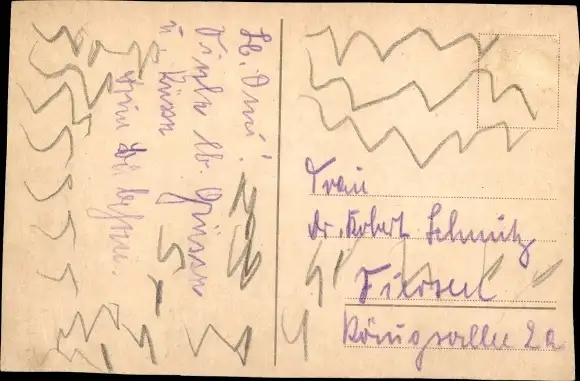 Lb. Omi!
Viele lb. Grüsse
u. Küsse
Frau
Dr. Robert Schmitz
Viersen
Königsallee 2a